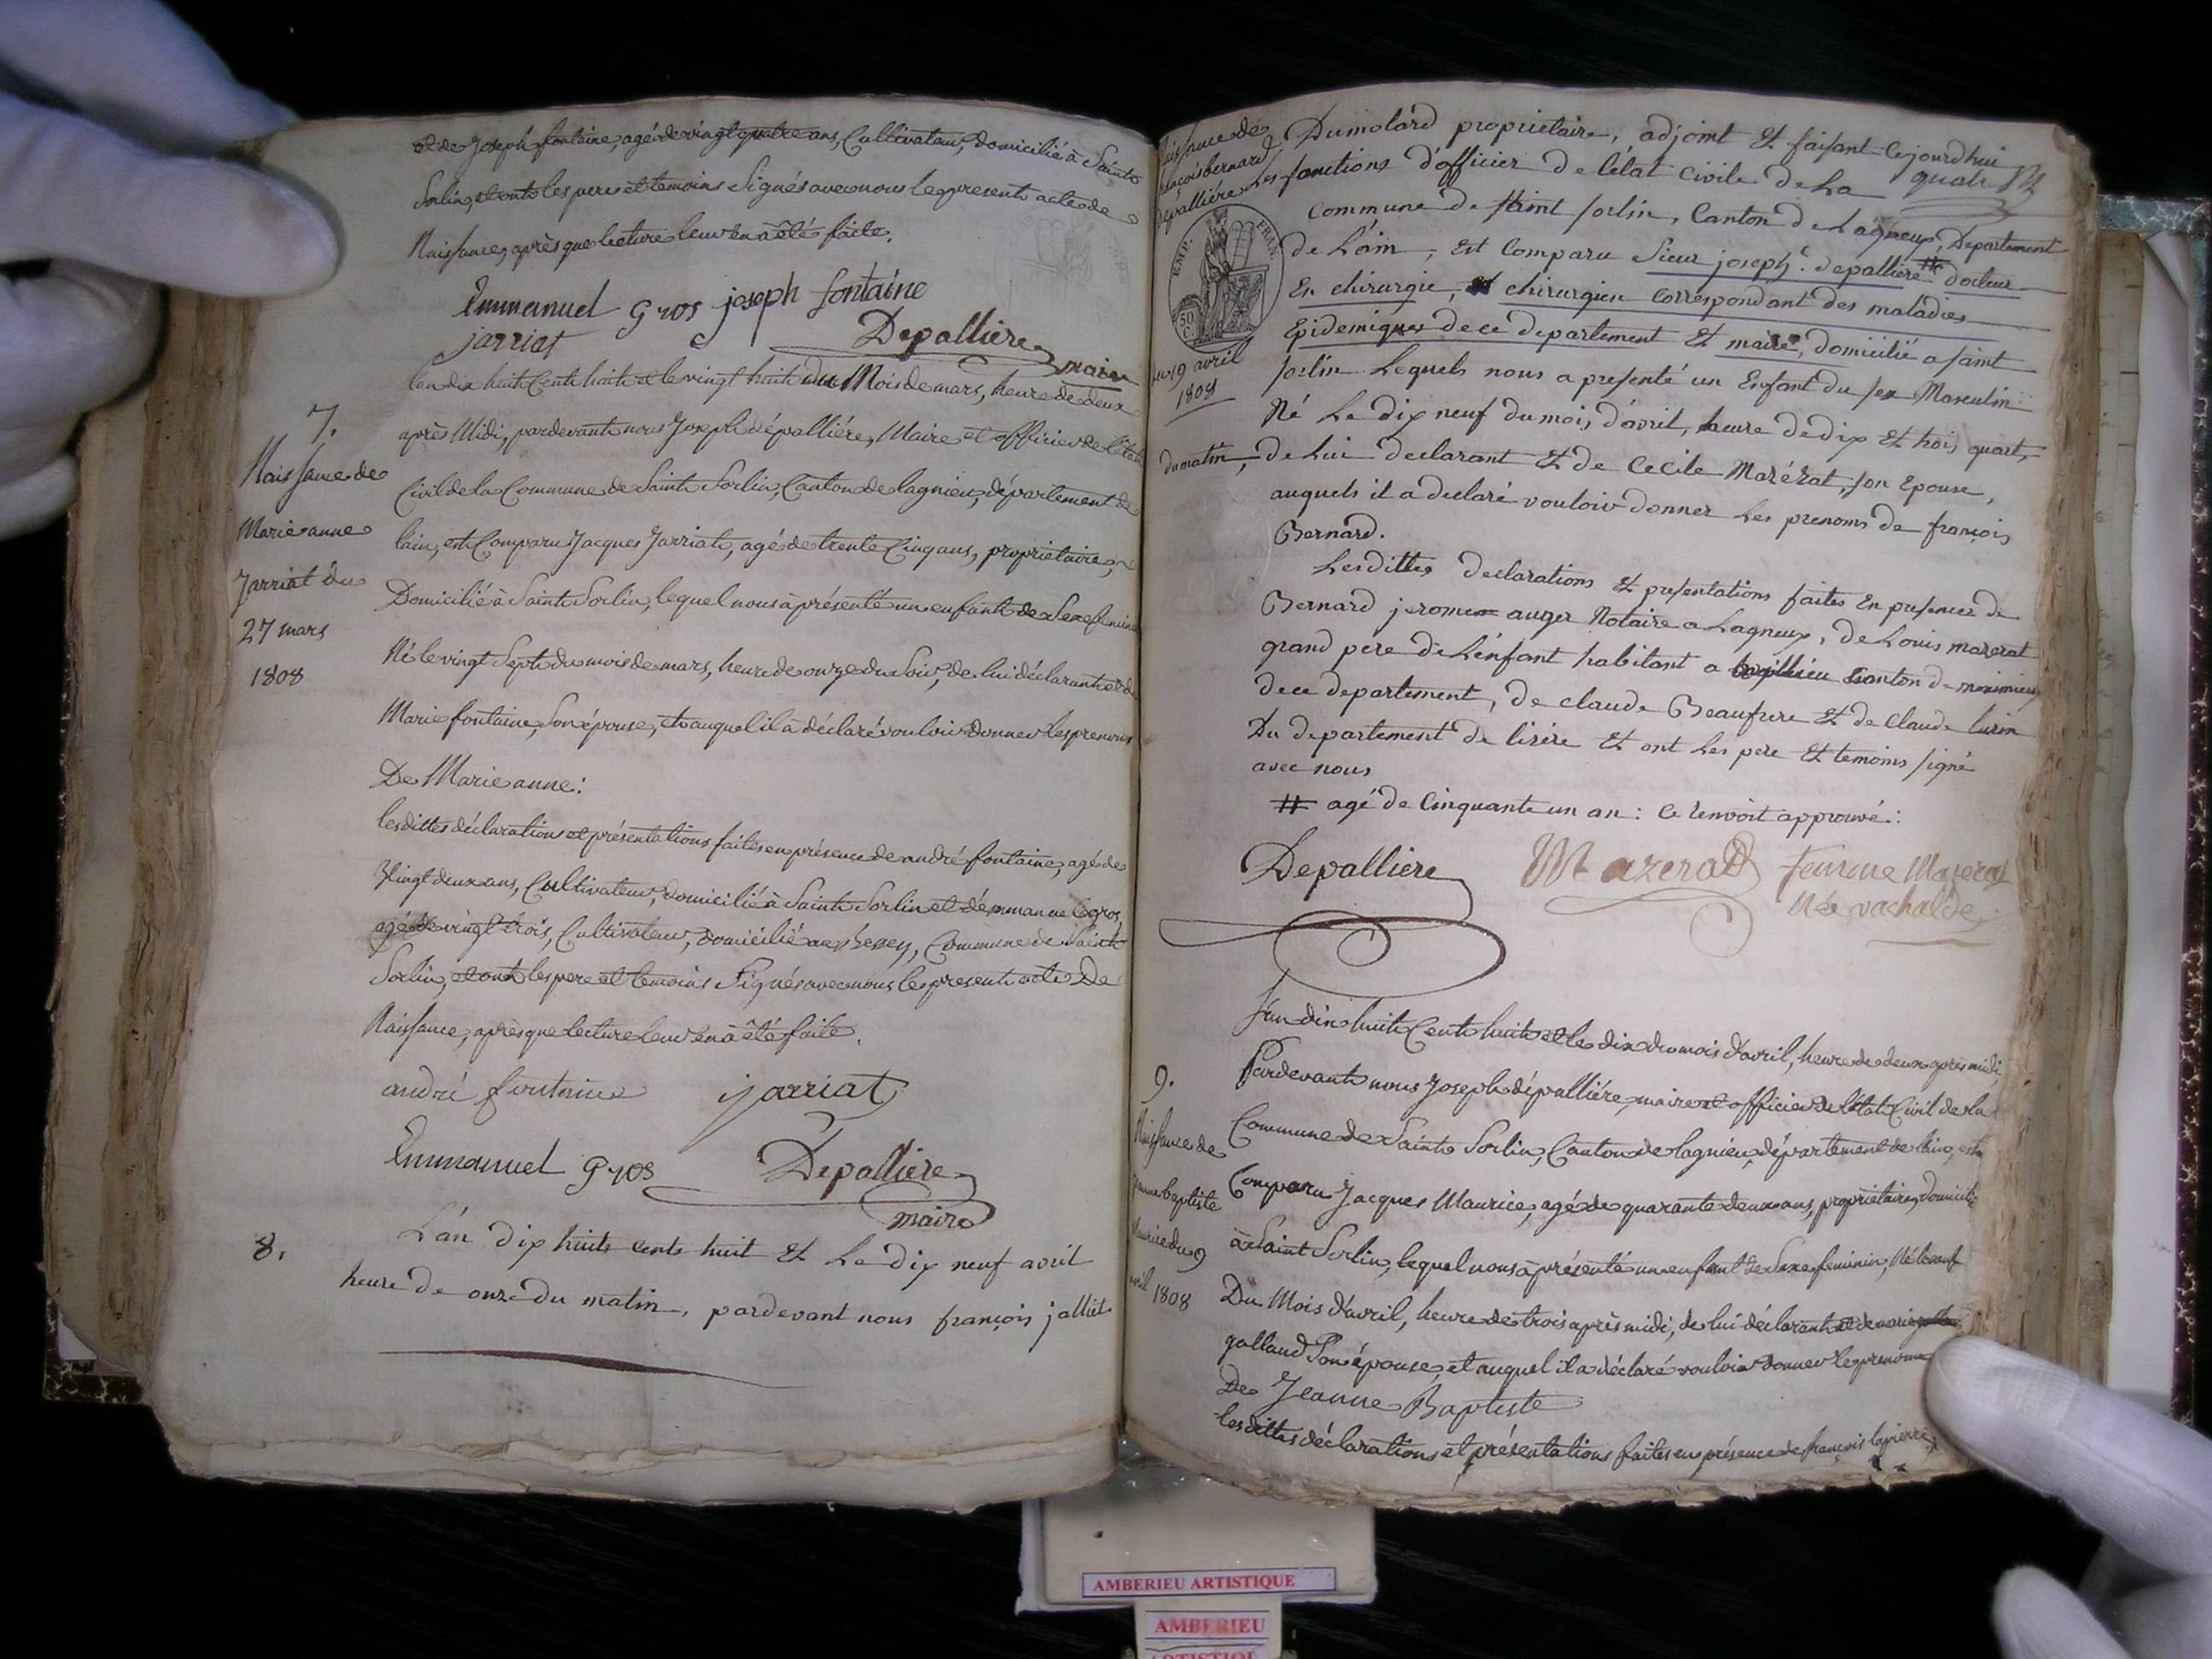 et de Joseph fontaine, agé de vingt quatre ans, Cultivateur, domicilié à Saint
Sorlin, et ont les peres et temoins Signés avec nous le present acte de
Naissance, après que lecture leur en à été faite.
Emmanuel Gros joseph fontaine
jarriat Depalliere
maire
lan dix huit Cent huit et le vingt huit du Mois de mars, heure de deux
après Midi, pardevant nous Joseph dépalliére, Maire et officier de l'état
7.
Naissance de
Marie anne
Jarriat du
27 mars
1808
Civil de la Commune de Saint Sorlin, Canton de lagnieu, département de
lain, est Comparu Jacques Jarriat, agé de trente Cinq ans, propriétaire,
Domicilié à Saint Sorlin, lequel nous à présenté un enfant de Sexe feminin
Né le vingt Sept du mois de mars, heure de onze du Soir, de lui déclarant et de
Marie fontaine, Son épouse, et auquel il à déclaré vouloir donner les prenoms
De Marie anne:
lesdittes déclarations et présentations faites en présence de andré fontaine, agé de
Vingt deux ans, Cultivateur, domicilié à Saint Sorlin et démmanuel gros,
agé de vingt trois, Cultivateur, domicilié au, Commune de Saint
Sorlin, et ont les pere et temoins Signés avec nous le present acte De
Naissance, après que lecture leur en à été faite.
andré fontaine jarriat
Emmanuel Gros Depalliere
maire
8.
L'án dix huit cents huit Et Le dix neuf avril
heure de onze du matin, pardevant nous françois jalliet
Naissance de
françois bernard
depalliére
EMP. FRAN.
50 C.
du 19 avril
1808
Dumolard propriétaire, adjoint Et faisant cejourdhui
Les fonctions d'officier de létat Civile de La
quatr
Commune de Saint sorlin, Canton de Lagneux, Departement
de L'ain, Est Comparu Sieur joseph depalliere # docteur
En chirurgie, chirurgien Correspondant des maladies
Epidemiques de ce departement Et maire, domicilié a saint
sorlin Lequels nous a presenté un Enfant du sex Masculin
Né Le dix neuf du mois d'avril, heure de dix Et trois quart,
du matin, de Lui declarant Et de Cecile Mazérat, son Epouse,
auquels il a declaré vouloir donner Les prenoms de françois
Bernard.
Lesdittes declarations Et presentations faites En presence de
Bernard jerome auger Notaire a Lagneux, de Louis mazerat
grand pere de L'énfant habitant a Canton de meximieux
de ce departement, de claude Beaufrere Et de Claude
Du departement de lisère Et ont Les pere Et temoins signé
avec nous
# agé de Cinquante un an: Ce renvoit approuvé:
Depalliere Mazerat femme Mazerat
Née vachalde
9.
Naissance de
jeanne baptiste
Maurice du 9
avril 1808
lan dix huit Cent huit et le dix du mois d'avril, heure de deux après midi,
Pardevant nous Joseph dépalliére, maire et officier de l'état Civil de la
Commune de Saint Sorlin, Canton de lagnieu, département de lain, est
Comparu Jacques Maurice, agé de quarante deux ans, propriétaire, domicilié
à Saint Sorlin, lequel nous à présenté un enfant de Sexe feminin, Né le neuf
Du Mois d'avril, heure de trois après midi, de lui déclarant et de marie
galland Son épouse, et auquel il a déclaré vouloir donner les prenoms
De Jeanne Baptiste
lesdittes déclarations et présentations faites en présence de françois lapierre,
AMBERIEU ARTISTIQUE
AMBERIEU
ARTISTIQUE